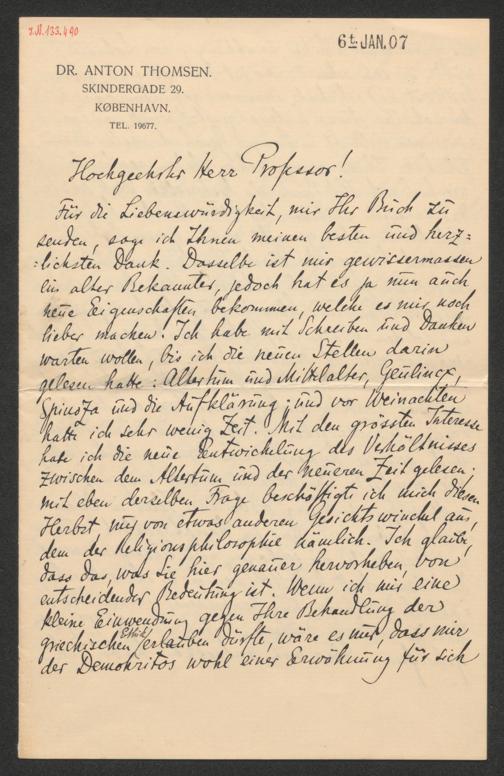 I.N. 133.490
6 JAN. 07
DR. ANTON THOMSEN.
SKINDERGADE 29.
KØBENHAVN.
TEL. 19677.
Hochgeehrter Herr Professor!
Für die Liebenswürdigkeit, mir Ihr Buch zu
senden, sage ich Ihnen meinen besten und herz=
=lichsten Dank. Dasselbe ist mir gewissermassen
ein alter Bekannter, jedoch hat es ja nun auch
neue Eigenschaften bekommen, welche es mir noch
lieber machen. Ich habe mit Schreiben und Danken
warten wollen, bis ich die neuen Stellen darin
gelesen hatte: Altertum und Mittelalter, Geulincx,
Spinoza und die Aufklärung; und vor Weinachten
hatte ich sehr wenig Zeit. Mit den grössten Interesse
habe ich die neue Entwickelung des Verhältnisses
zwischen dem Altertum und der neueren Zeit gelesen;
mit eben derselben Frage beschäftigte ich mich diesen
Herbst nur von etwas anderen Gesichtswinckel aus,
dem der Religionsphilosophie nämlich. Ich glaube,
dass das, was Sie hier genauer hervorheben, von
entscheidender Bedeutung ist. Wenn ich mir eine
kleine Einwendung gegen Ihre Behandlung der
griechischen Ethik erlauben dürfte, wäre es nur, dass mir
der Demokritos wohl einer Erwähnung für sich